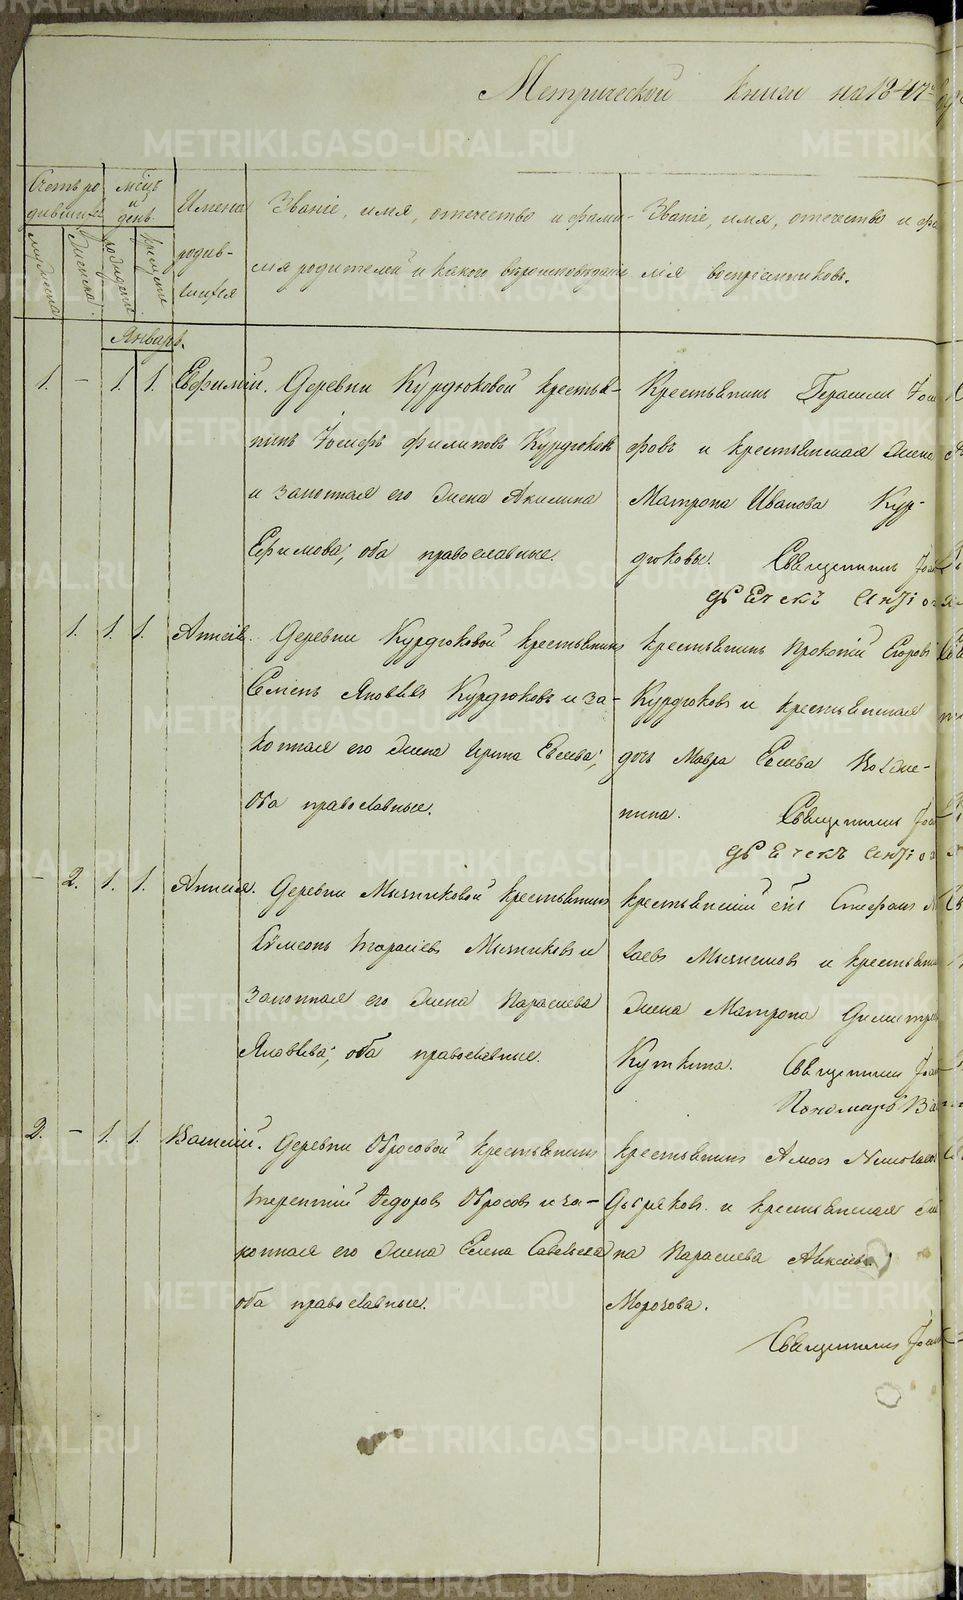 Метрической книги на 1847
Счетъ ро-
дившихся
Мѣсяцъ
и
день
мужеска
женска
рожденія
крещенія
Имена
родив-
шихся
Званіе, имя, отечество и фами-
лія родителей и какого вѣроисповѣданія
Званіе, имя, отечество и фа
лія воспріемниковъ.
Январь.
1. – 1. 1. Евфимій.
Деревни Курдюковой крестья-
нинъ Іосифъ Филиповъ Курдюковъ
и законная его жена Акилина
Ефимова; оба православные.
Крестьянинъ Герасимъ Іоси
фовъ и крестьянская жена
Матрона Иванова Кур-
дюковы. Священникъ Іоан
дьечекъ Антіо
1. 1. 1.
Деревни Курдюковой крестьянинъ
Семенъ Яковлевъ Курдюковъ и за-
конная его жена Ирина Евсеева;
оба православные.
крестьянинъ Прокопій Егоровъ
Курдюковъ и крестьянская
дочь Мавра Елеева
нина. Священникъ Іоан
дьечекъ Антіо
– 2. 1. 1.
Деревни Мысниковой крестьянинъ
Симеонъ Тарасіевъ Мысниковъ и
законная его жена Параскева
Яковлева; оба православные.
крестьянскій сынъ Стефанъ
лаевъ и крестьянская
жена Матрона Димитріева
Куткина. Священникъ Іоан
Пономарь Ва
2. – 1. 1. Василій.
Деревни Обросовой крестьянинъ
Терентій Ѳедоровъ Обросовъ и за-
конная его жена Елена Савельева
оба православные.
крестьянинъ Амосъ Николаевъ
и крестьянская же
на Параскева Алексѣева
Морозова.
Священникъ Іоан
METRIKI.GASO-URAL.RU